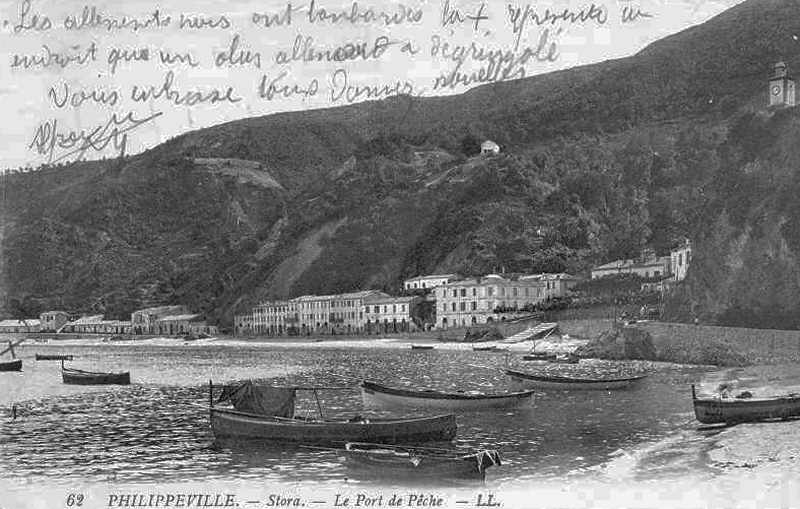 Les allements nous ont bombardés la + represente un
endroit que un obus allemand a dégringolé
Vous embrasse tous Donnez nouvelles
62 PHILIPPEVILLE. – Stora. – Le Port de Pêche – LL.